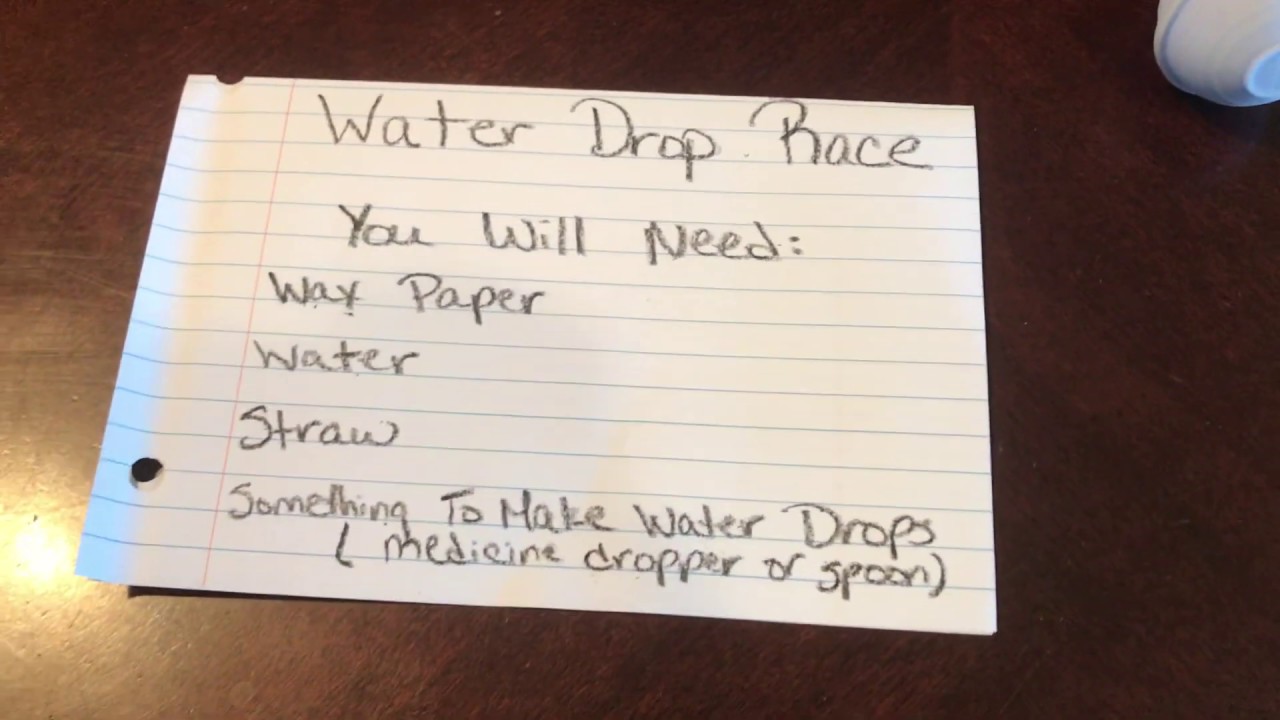 Water Drop Race
You Will Need:
Wax Paper
Water
Straw
Something To Make Water Drops
( medicine dropper or spoon)